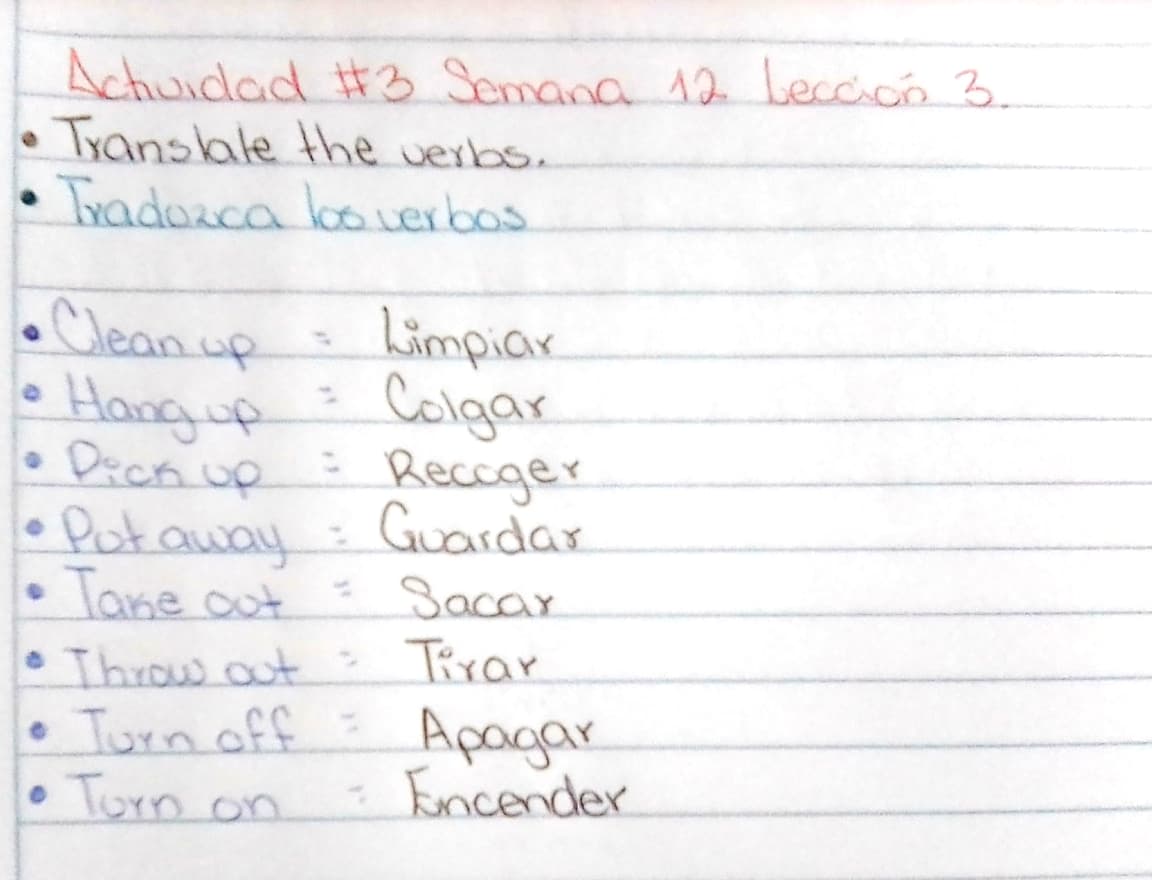 Actividad #3 Semana 12 Lección 3.
• Translate the verbs.
• Traduzca los verbos
• Clean up = Limpiar
• Hang up = Colgar
• Pick up = Recoger
• Put away = Guardar
• Take out = Sacar
• Throw out = Tirar
• Turn off = Apagar
• Turn on = Encender